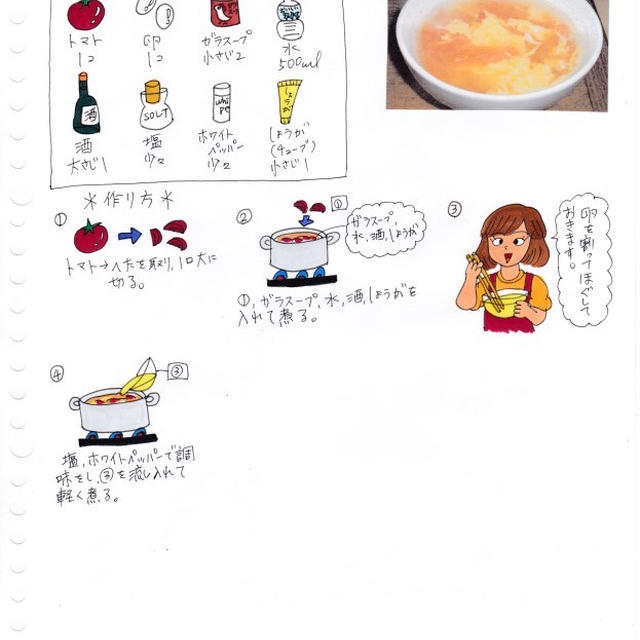 トマト
1コ
卵
1コ
ガラスープ
小さじ2
水
500ml
酒
酒
大さじ1
SOLT
塩
少々
ホワイト
ペッパー
少々
しょうが
しょうが
(チューブ)
小さじ1
*作り方*
①
トマト→へたを取り、1口大に
切る。
②
①
ガラスープ、
水、酒、しょうが
①、ガラスープ、水、酒、しょうがを
入れて煮る。
③
卵を割ってほぐして
おきます。
④
③
塩、ホワイトペッパーで調
味をし、③を流し入れて
軽く煮る。